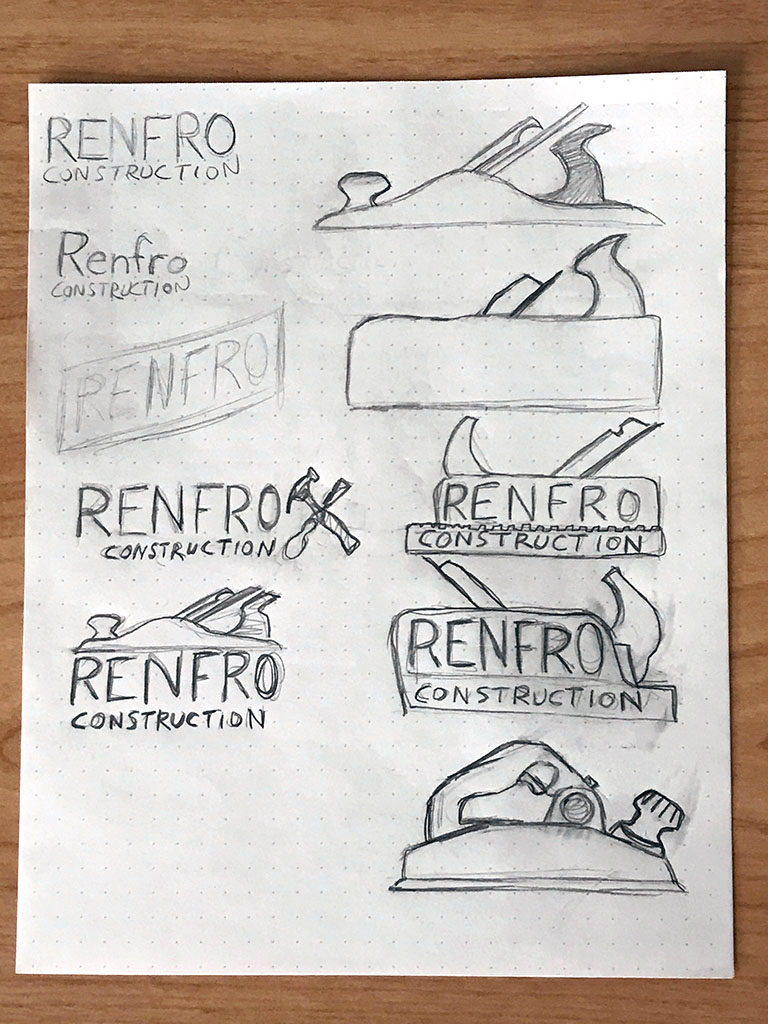 RENFRO
CONSTRUCTION
Renfro
CONSTRUCTION
RENFRO
RENFRO
CONSTRUCTION
RENFRO
CONSTRUCTION
RENFRO
CONSTRUCTION
RENFRO
CONSTRUCTION